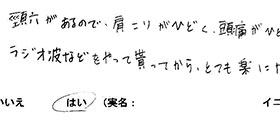 頸穴があるので、肩こりがひどく、頭痛がひ
ラジオ波などをやって貰ってから、とても楽に
いいえ はい (実名: イニ